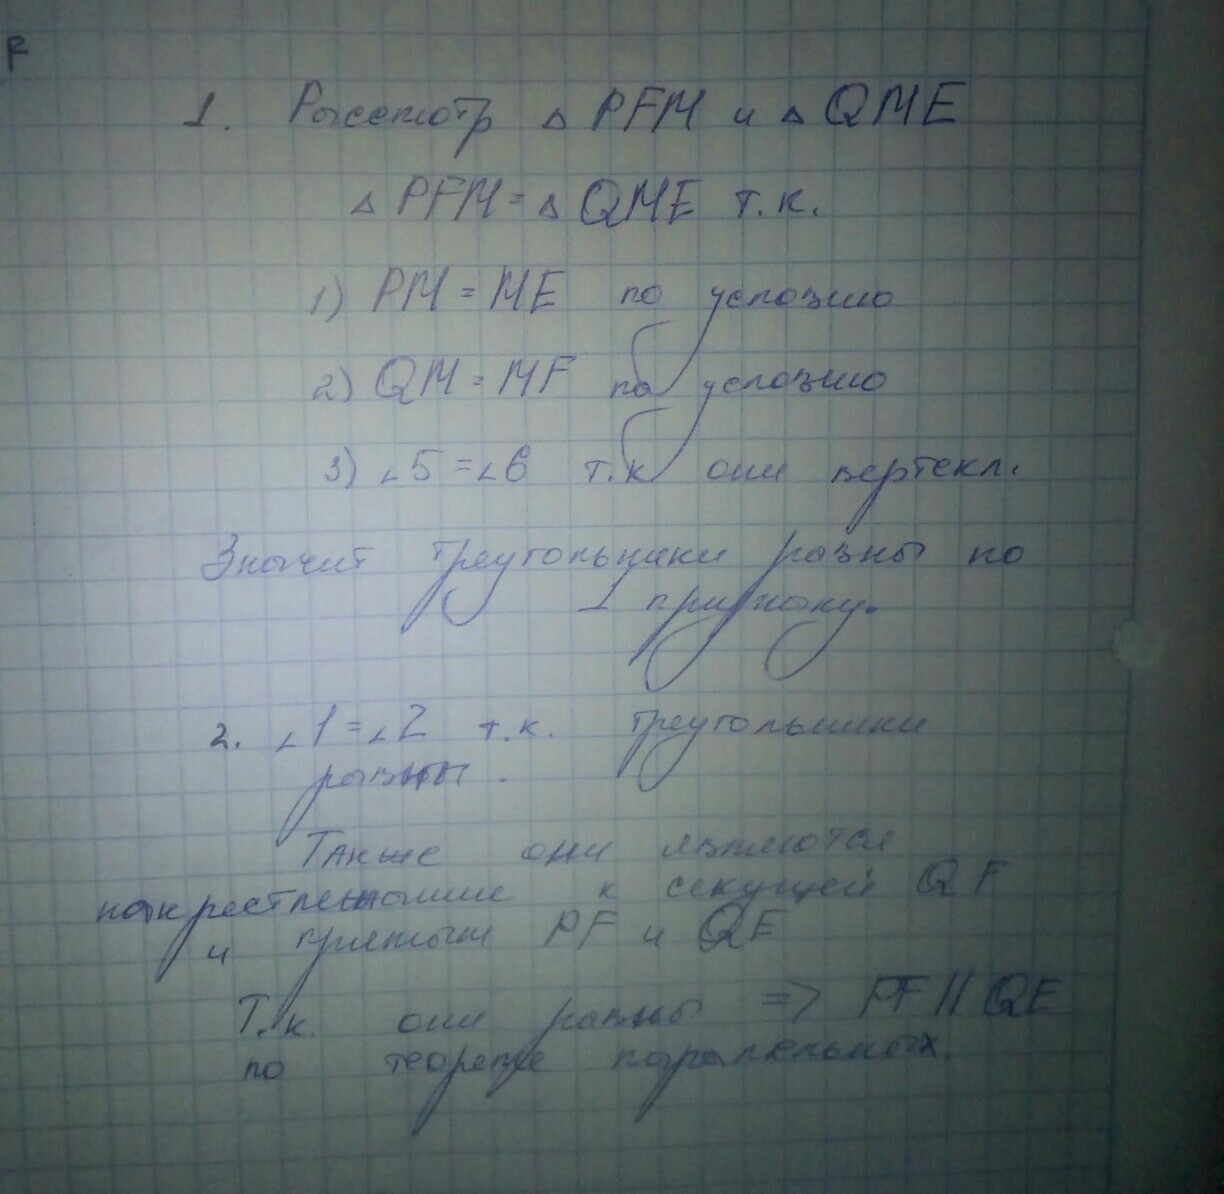 F
1. Рассмотр △ PFM и △ QME
△ PFM = △ QME т.к.
1) PM = ME по условию
2) QM = MF по условию
3) ∠5 = ∠6 т.к они вертекл.
Значит треугольники равны по
1 признаку.
2. ∠1 = ∠2 т.к. треугольники
равны.
Также они являются
накрестлежащие к секущей QF
и прямым PF и QE
Т.к. они равны => PF || QE
по теореме паралельных.